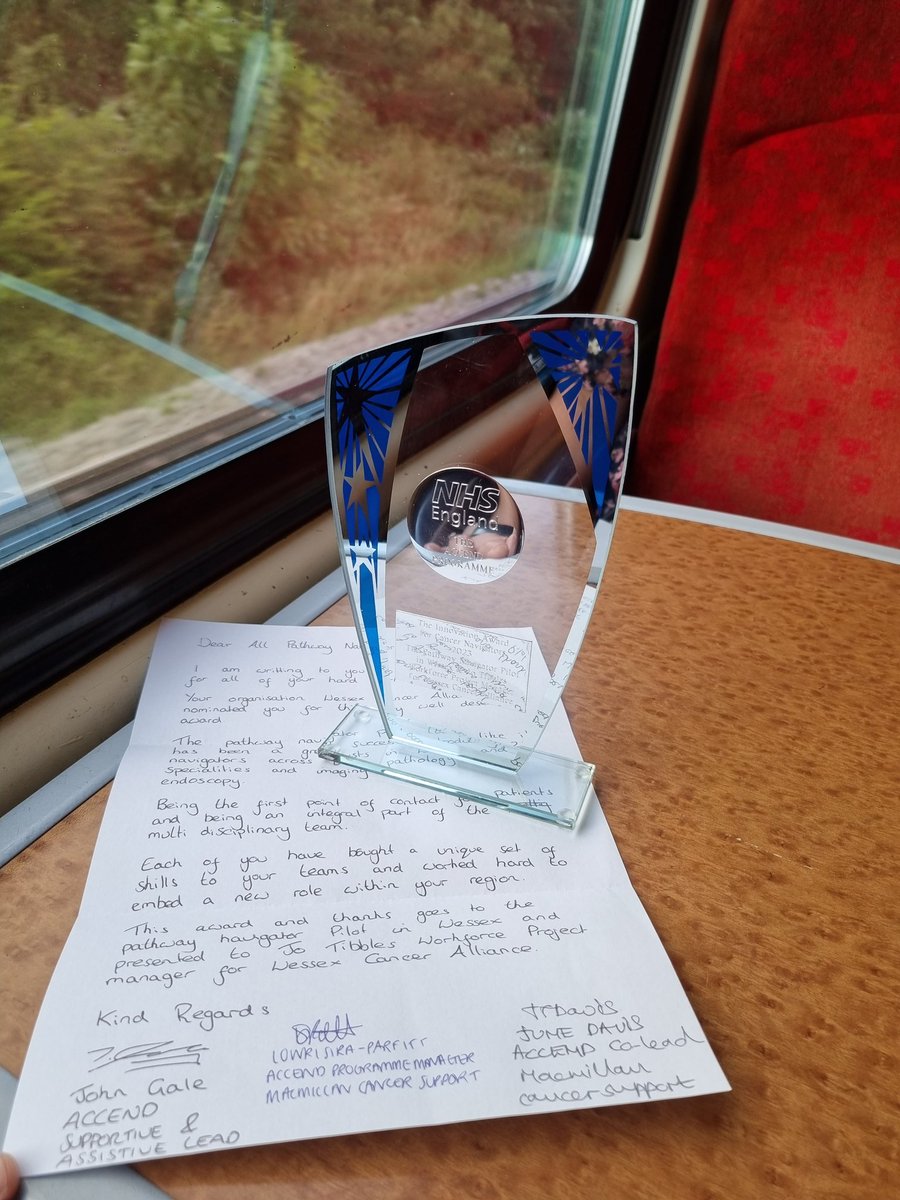 NHS
England
THE
PROGRAMME
The Innovation Award
For Cancer Navigators
2023
The Pathway Navigator Pilot
in Wessex
for Wessex Cancer
Dear All Pathway
I am writing to you
for all of your hard
Your organisation Wessex Cancer
nominated you for this very well
award
The pathway
has been a
navigators across pathology
specialities and imaging
endoscopy.
Being the first point of contact for patients
and being an integral part of the
multi disciplinary team.
Each of you have bought a unique set of
skills to your teams and worked hard to
embed a new role within your region.
This award and thanks goes to the
pathway navigator Pilot in Wessex and
presented to Jo Tibbles Workforce Project
manager for Wessex Cancer Alliance.
Kind Regards
John Gale
ACCEND
SUPPORTIVE &
ASSISTIVE LEAD
LOWRI SIRA-PARFITT
ACCEND PROGRAMME MANAGER
MACMILLAN CANCER SUPPORT
JUNE DAVIS
ACCEND Co-Lead
Macmillan
cancer support